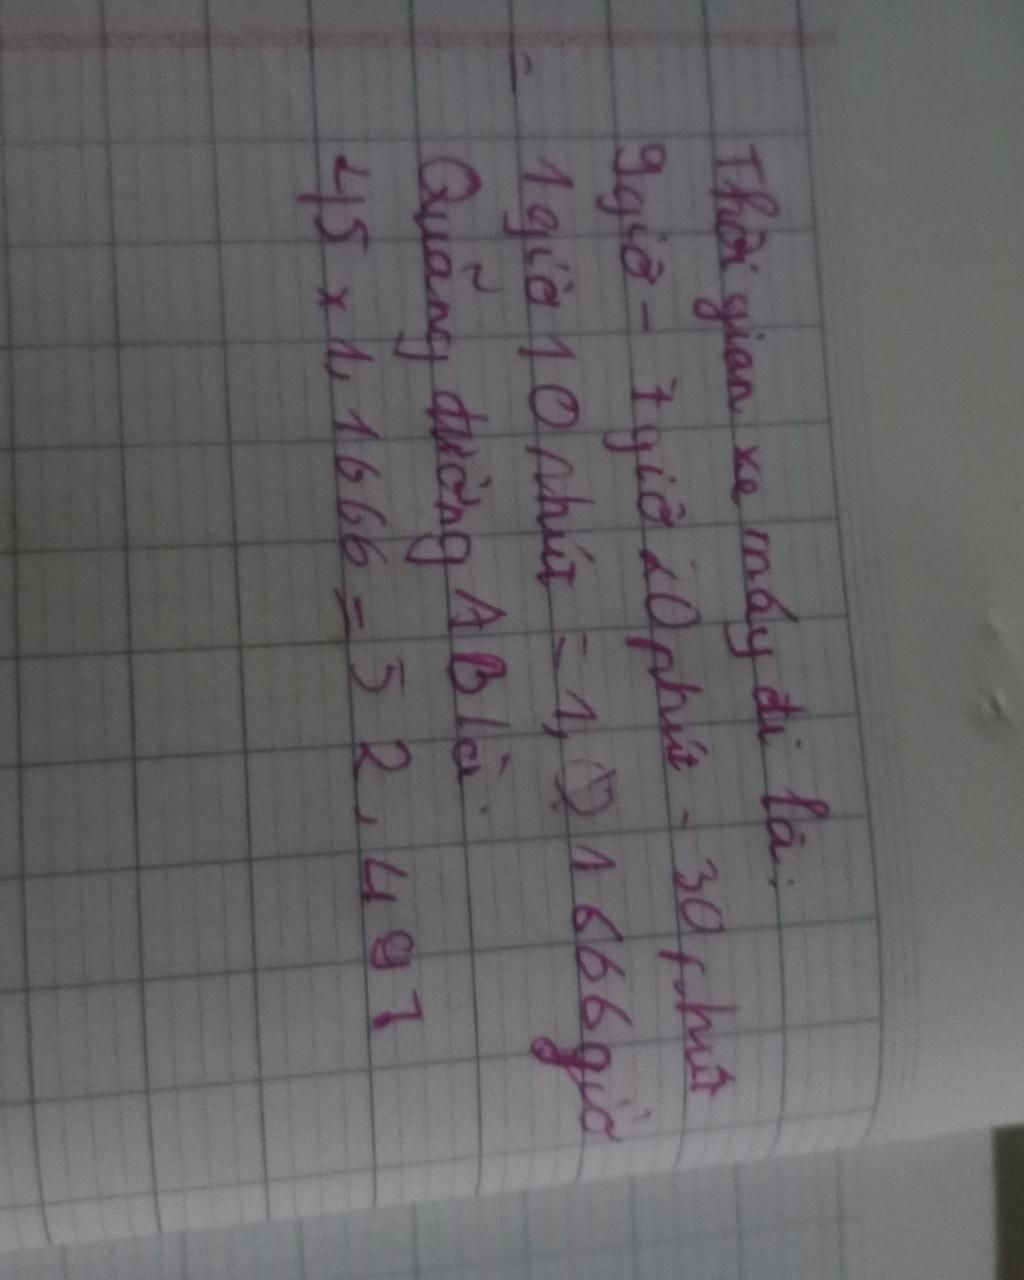 Thời gian xe máy đi là:
9giờ - 7giờ 20phút - 30 phút
= 1giờ 10 phút = 1,1666giờ
Quãng đường AB là:
45 x 1,1666 = 52,497